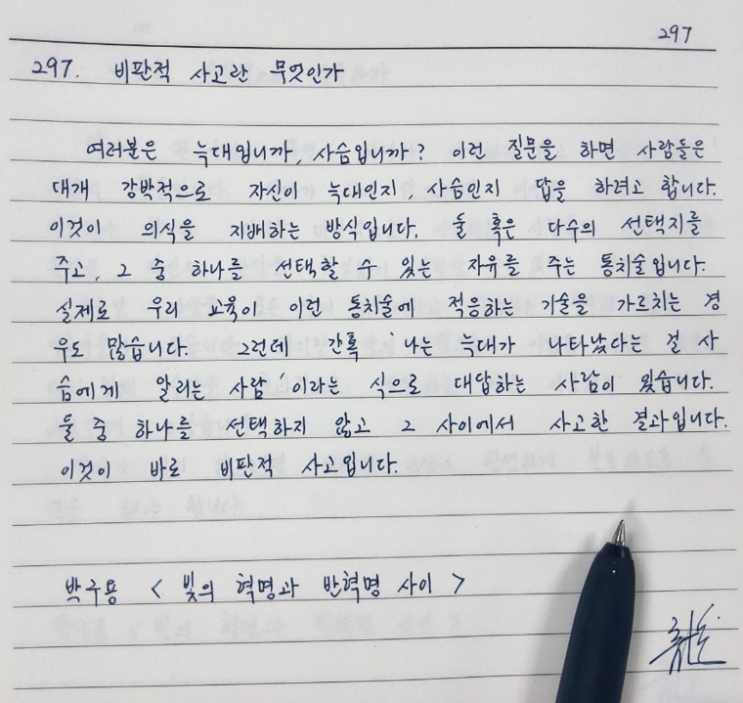 297
297. 비판적 사고란 무엇인가
여러분은 늑대입니까, 사슴입니까? 이런 질문을 하면 사람들은
대개 강박적으로 자신이 늑대인지, 사슴인지 답을 하려고 합니다.
이것이 의식을 지배하는 방식입니다. 둘 혹은 다수의 선택지를
주고, 그 중 하나를 선택할 수 있는 자유를 주는 통치술입니다.
실제로 우리 교육이 이런 통치술에 적응하는 기술을 가르치는 경
우도 많습니다. 그런데 간혹 '나는 늑대가 나타났다는 걸 사
슴에게 알리는 사람'이라는 식으로 대답하는 사람이 있습니다.
둘 중 하나를 선택하지 않고 그 사이에서 사고한 결과입니다.
이것이 바로 비판적 사고입니다.
박구용 < 빛의 혁명과 반혁명 사이 >